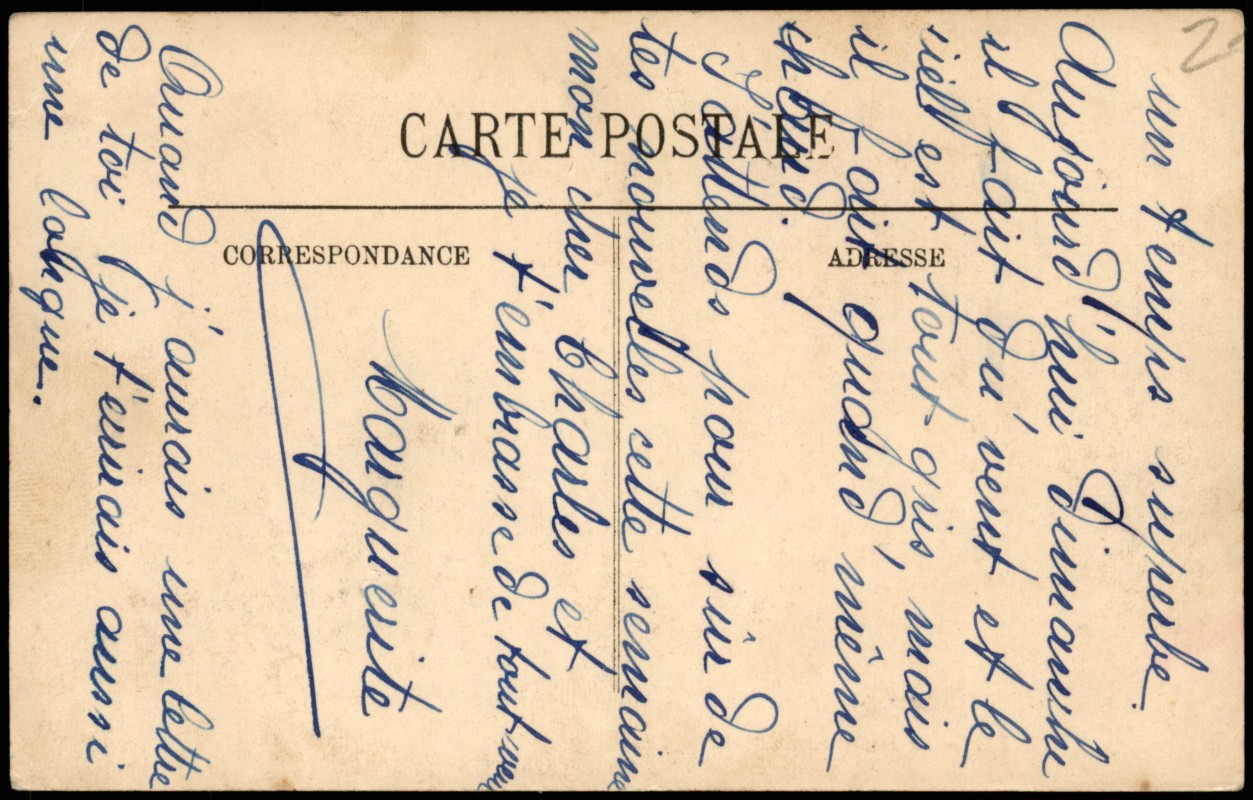 CARTE POSTALE
CORRESPONDANCE
ADRESSE
un temps superbe.
Aujourd'hui dimanche
il fait du vent et le
siel est tout gris, mais
il fait quand même
chaud.
J'attends pour sûr de
tes nouvelles cette semaine
mon cher Charles et
je t'embrasse de tout cœur
Marguerite
Quand j'aurais une lettre
de toi je t'enrirais aussi
une longue.
2